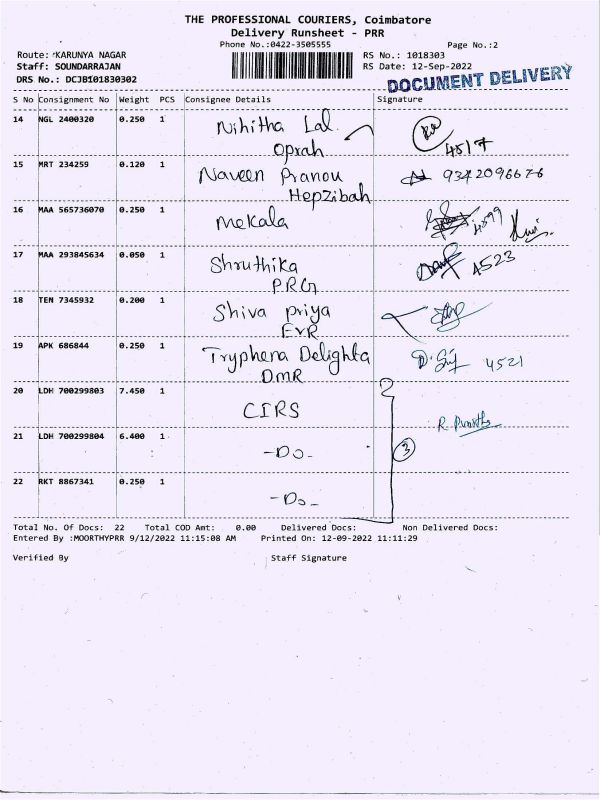 THE PROFESSIONAL COURIERS, Coimbatore
Delivery Runsheet - PRR
Phone No.:0422-3505555
Page No.:2
Route: KARUNYA NAGAR
RS No.: 1018303
Staff: SOUNDARRAJAN
RS Date: 12-Sep-2022
DRS No.: DCJB101830302
DOCUMENT DELIVERY
S No Consignment No Weight PCS Consignee Details Signature
14 NGL 2400320 0.250 1 Nihitha Lal.
Oprah 4517
15 MRT 234259 0.120 1 Naveen Pranou
Hepzibah
16 MAA 565736070 0.250 1 Mekala 4599
17 MAA 293845634 0.050 1 Shruthika 4523
PRG
18 TEN 7345932 0.200 1 Shiva priya
EVR
19 APK 686844 0.250 1 Tryphena Delighta 4521
DMR
20 LDH 700299803 7.450 1 CIRS
21 LDH 700299804 6.400 1 -Do- 3
22 RKT 8867341 0.250 1 -Do-
Total No. Of Docs: 22 Total COD Amt: 0.00 Delivered Docs: Non Delivered Docs:
Entered By :MOORTHYPRR 9/12/2022 11:15:08 AM Printed On: 12-09-2022 11:11:29
Verified By Staff Signature